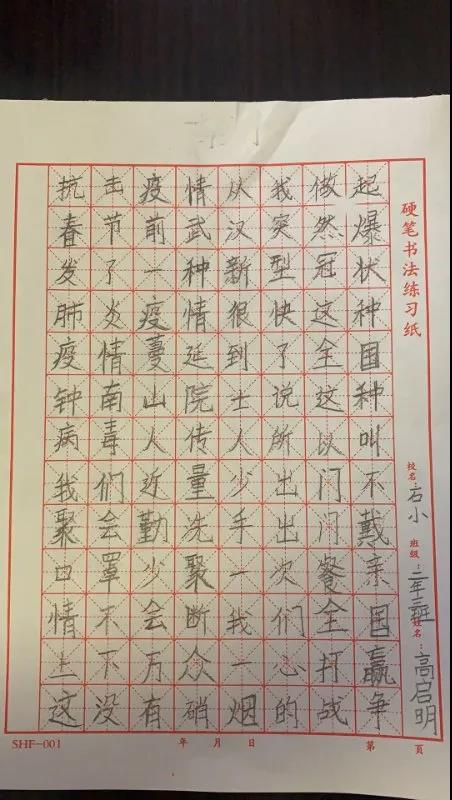 抗击疫情从我做起
春节前武汉突然爆
发了一种新型冠状
肺炎疫情很快这种
疫情蔓延到了全国
钟南山院士说这种
病毒人传人所以叫
我们近量少出门不
聚会勤洗手出门戴
口罩少聚一次餐亲
情不会断我们全国
上下万众一心打赢
这没有硝烟的战争
硬笔书法练习纸
校名：石小
班级：二年三班
姓名：高启明
SHF-001
年 月 日
第 页